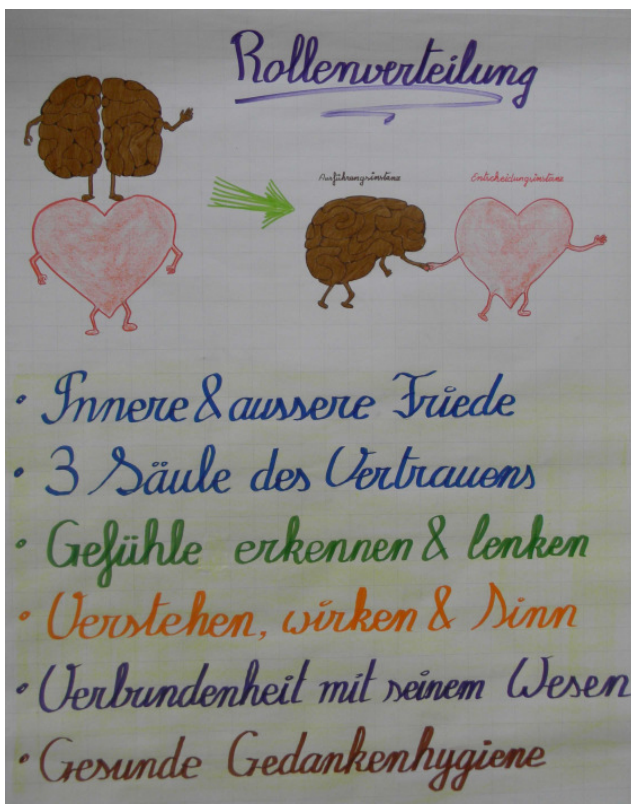 Rollenverteilung
Ausführungsinstanz
Entscheidungsinstanz
• Innere & aussere Friede
• 3 Säule des Vertrauens
• Gefühle erkennen & lenken
• Verstehen, wirken & Sinn
• Verbundenheit mit seinem Wesen
• Gesunde Gedankenhygiene